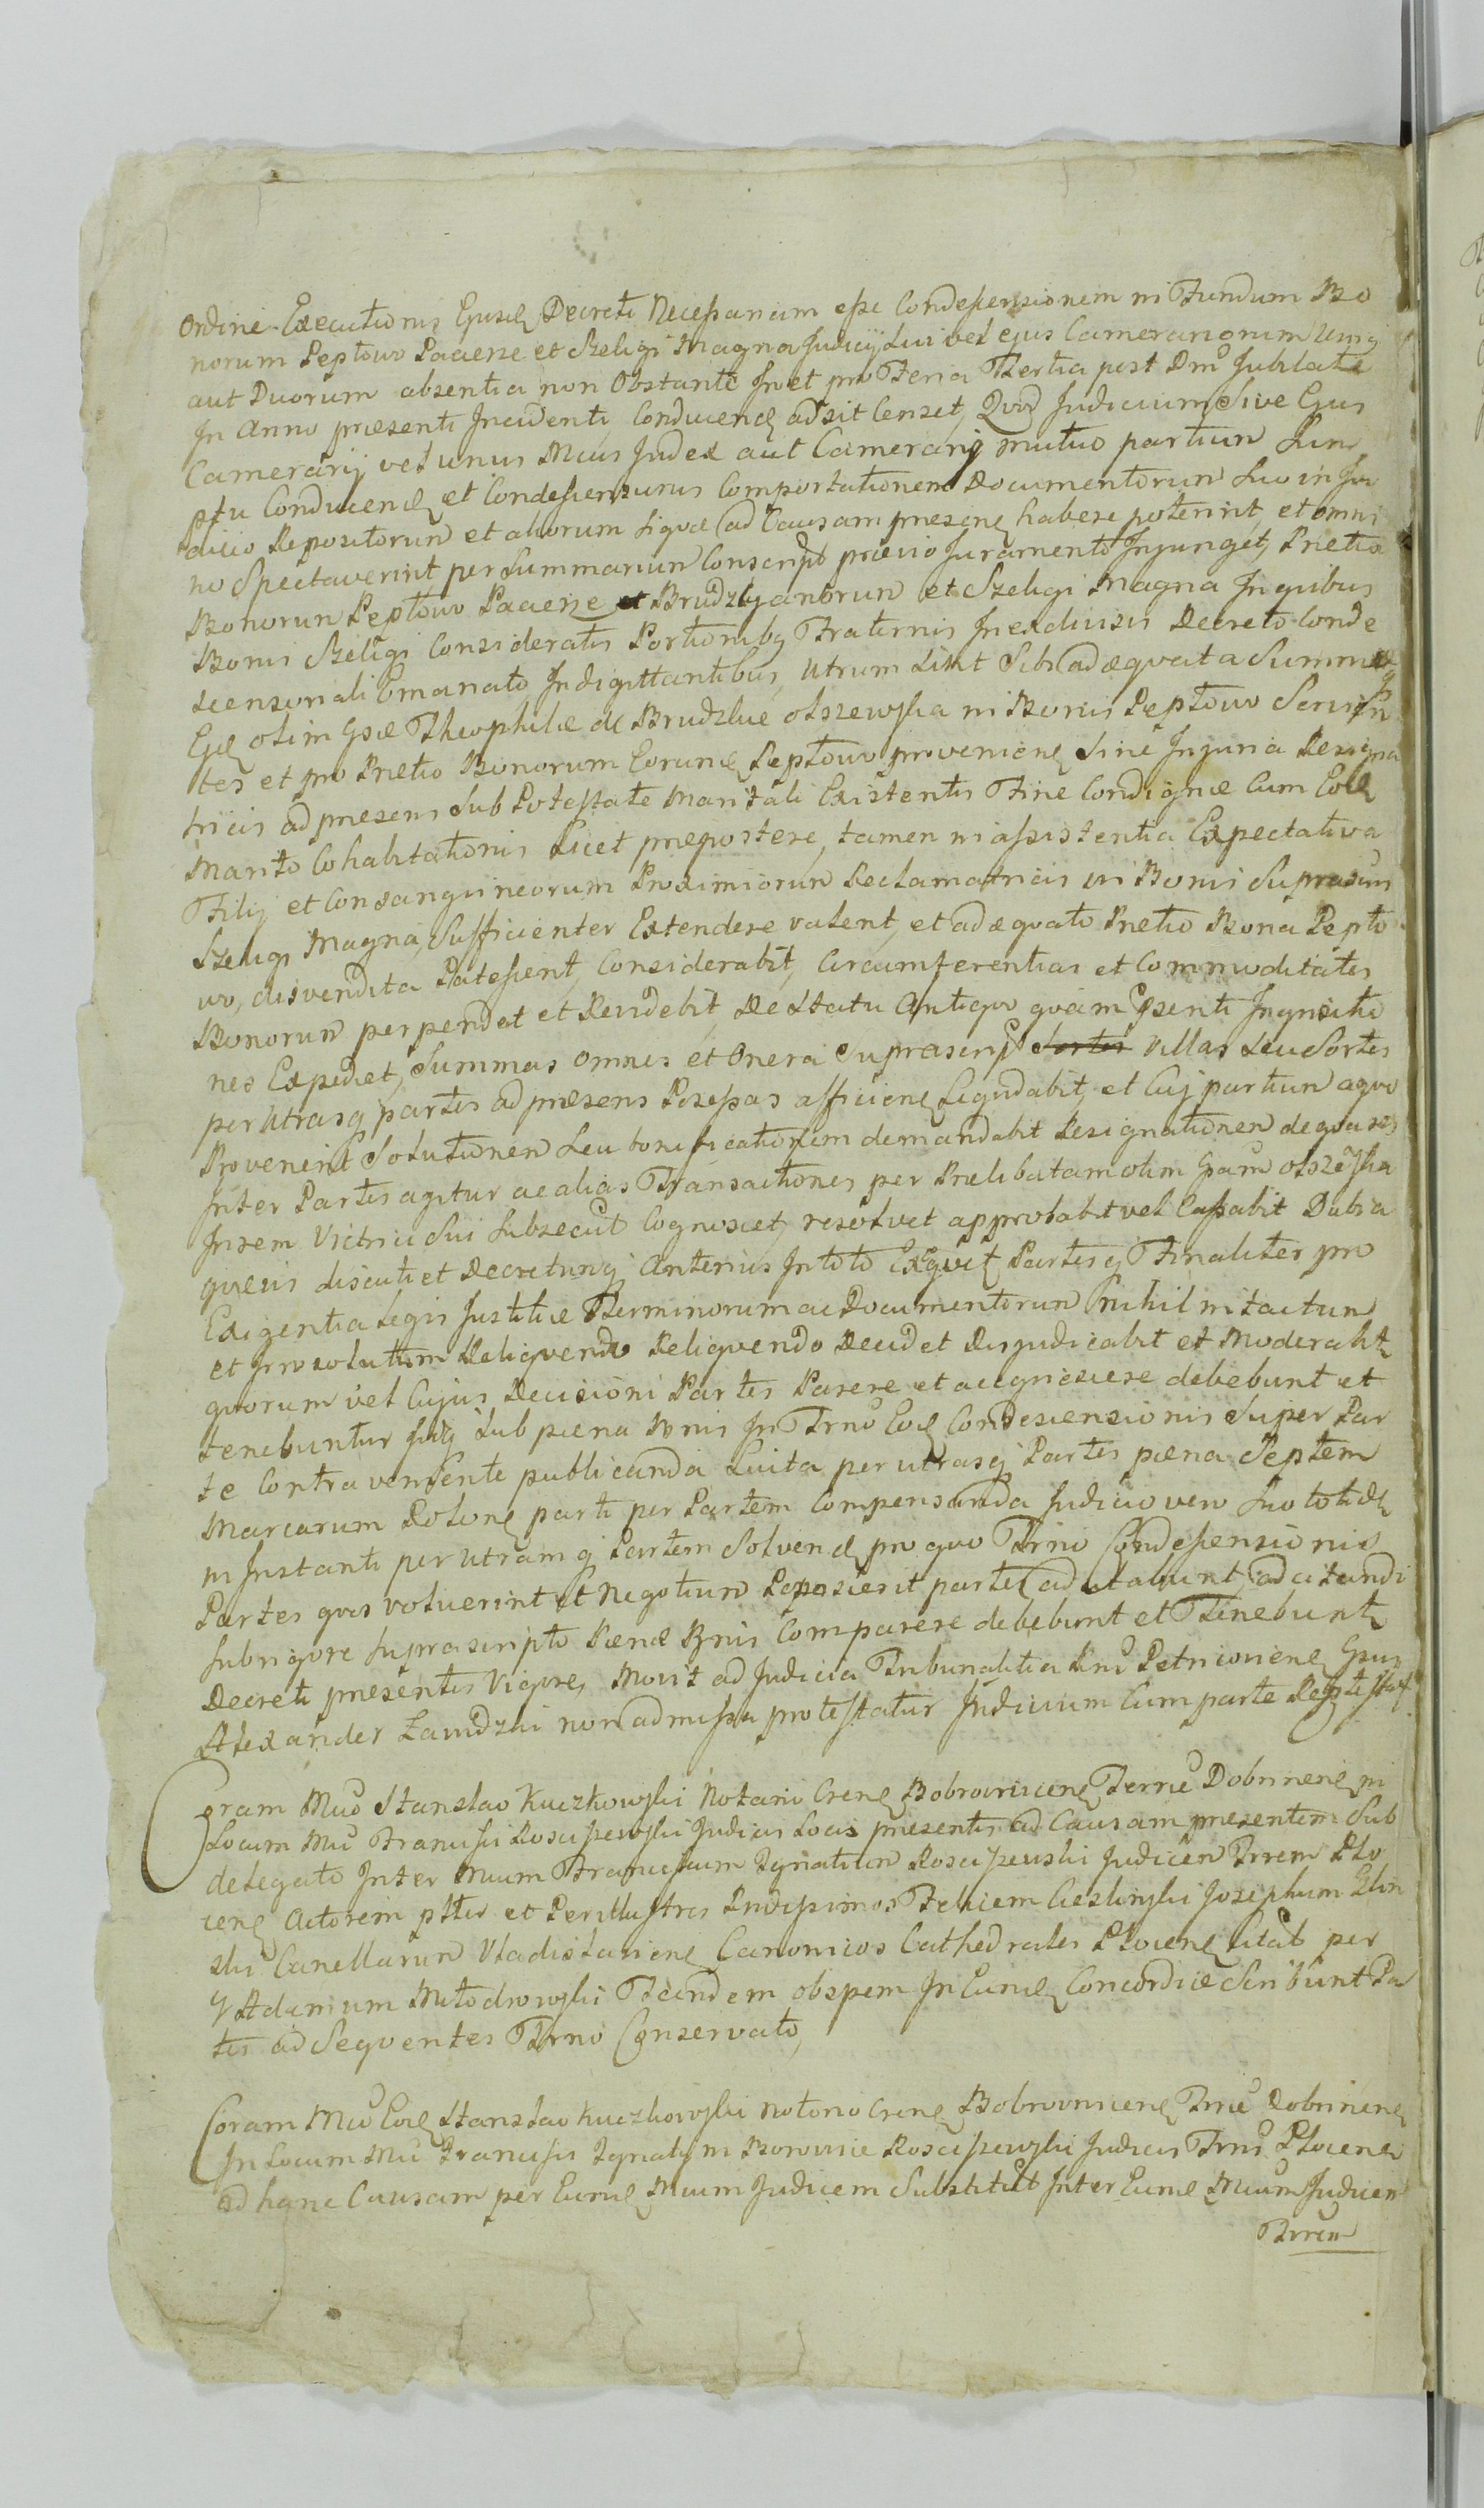 Ordine Executionis Ejusd Decreti Necessarium esse Condescensionem in Fundum Bo
norum Peptowo Pacierze et Szeligi Magna Judicij Sui vel ejus Camerariorum Unig
aut Duorum absentia non Obstante In et pro Feria Tertia post Dmc Jubilate
In Anno praesenti Incidenti, Conducend adsit Censet, Quod Judicium Sive Ejus
Camerarij vel unus Mcus Judex aut Camerarij mutuo partium Sum
ptu Conducend et Condescensurus Comportationem Documentorum Suo in Ju
dicio Repositorum et aliorum Siquae ad Causam praesene habere poterint, et omni
no Spectaverint per Summarium Conscript praevio Juramento Injunget, Pretia
Bonorum Peptowo Pacierze et Brudzyanorum et Szeligi Magna In quibus
Bonis Szeligi Consideratis Portionibq Fraternis Inexdivisis Decreto Conde
scensoriali Emanato Indigittantibus, Utrum Sint Sibi adaequata Summae
Ged olim Gsae Theophilae de Brudzkie olszewska in Bonis Peptowo Servien
tes et pro Pretio Bonorum Eorund Peptowo proveniene Sine Injuria Resigna
tricis ad praesens Sub Potestate Maritali Existentis Fine Condignae Cum Eod
Marito Cohabitationis Licet praepostere, tamen in assistentia Expectativa
Filij et Consangvineorum Proximiorum Reclamatricis in Bonis Suprascrip
Szeligi Magna, Sufficienter Extendere valent, et adaequato Pretio Bona Pepto
wo, disvendita Patescent, Considerabit, Circumferentias et Commoditates
Bonorum perpendet et Revidebit, De Statu Antiquo quam Psenti Inqvisitio
nes Expediet, Summas omnes et Onera Suprascrip Sortes Villas Seu Sortes
per Utrasq partes ad praesens Possessas afficiene Liqvidabit, et Cuj partium aquo
Provenerit Solutionem Seu bonificationem demandabit Resignationem de qua res
Inter Partes agitur ac alias Transactiones per Praelibatam olim Gsam olszewska
In rem Victrici Sui Subsecut Cognoscet, resolvet approbabit vel Cassabit Dubia
quaevis discutiet Decretumq Anterius In toto Exequet Partesq Finaliter pro
Exigentia Legis Justitiae Terminorum ac Documentorum nihil intactum
et Irresolutum Relinquendo Relinquendo Decidet Disjudicabit et Moderabit
quorum vel Cujus Decisioni Partes Parere et acquiescere debebunt et
tenebuntur Idq Sub paena Bnis In Trno Eod Condescensionis Super Par
te Contraveniente publicanda Luita per utrasq Partes paena Septem
Marcarum Polone parti per Partem Compensanda Judicio vero Suo totid
in Instanti per Utramq Partem Solvend pro quo Trno Condescensionis
Partes quos voluerint et Negotium Poposcerit partes adcitabunt, adcitandi
Sub rigore Suprascripto Paenae Bnis Comparere debebunt et Tenebunt
Decreti praesentis Vigore, Movit ad Judicia Tribunalitia Rni Petricoviene Gsus
Alexander Zawidzki non admissa protestatur Judicium Cum parte Reptestat
Coram Mco Stanislao Kuczkowski Notario Crene Bobrovniciene Terrae Dobrinene in
Locum Mci Francisci Rosciszewski Judicis Locis praesentis ad Causam praesentem Sub
delegato Inter Mcum Franciscum Ignatium Rosciszewski Judicem Trrem Plo
cene Actorem ptter et Perillustres Rndissimos Felicem Cieslinski Josephum Glin
ski Cancellarium Vladislaviene Canonicos Cathedrales Plocene Citat per
Adamum Młodzowski Tandem obspem Ineund Concordiae Scribunt Par
tes ad Seqventes Trno Conservato,
Coram Mco Eod Stanislao Kuczkowski Notorio Crene Bobrovniciene Trrae Dobrinene
In Locum Mci Francisci Ignatij in Borowice Rosciszewski Judicis Trris Plocene
ad hanc Causam per Eund Mcum Judicem Substitut Inter Eund Mcum Judicem
Trrem